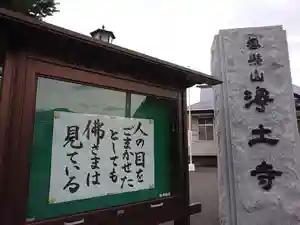 人の目を
ごまかせた
としても
佛さまは
見ている
山
浄土寺